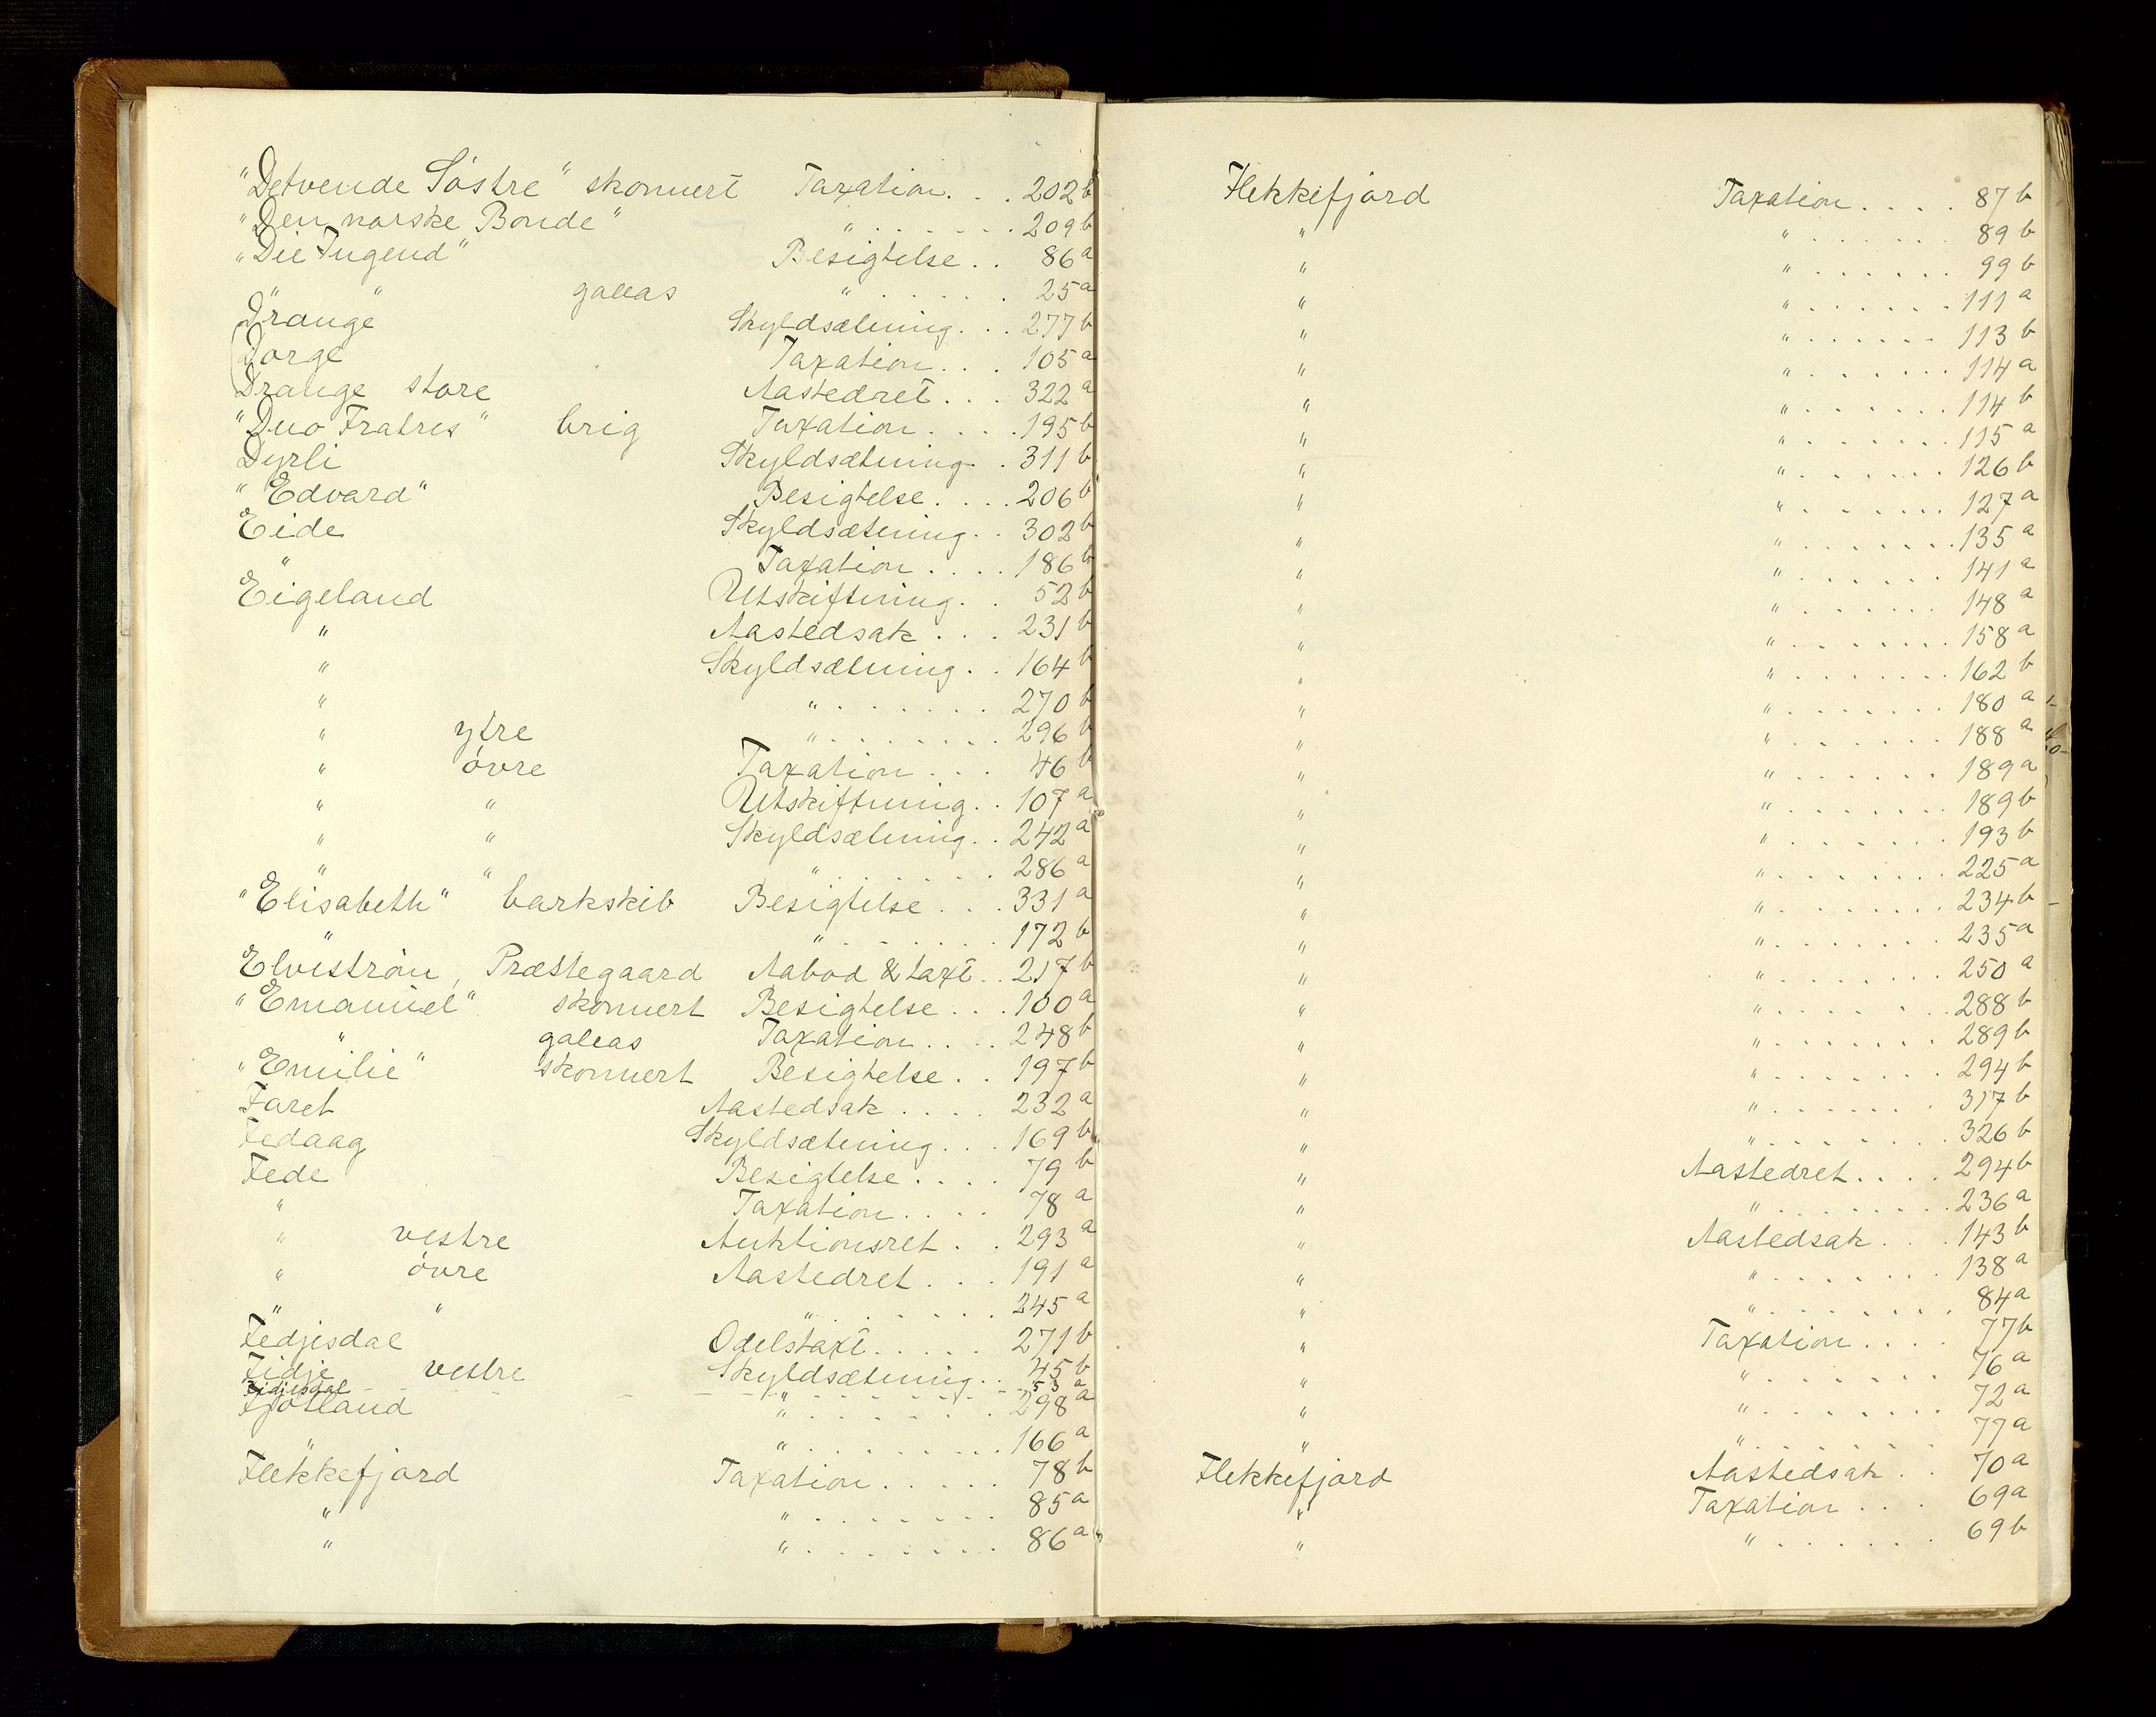 "De tvende Söstre" skonnert Taxation. . . 202 b
"Den norske Bonde" " . . . . . . . 209 b
"Die Jugend" Besigtelse . . 86 a
" " galeas " . . . . . . 25 a
Drange Skyldsætning. . . 277 b
Dorge Taxation. . . 105 a
Drange store Aastedret . . . 322 a
"Duo Fratres" brig Taxation . . . . 195 b
Dyrli Skyldsætning. . 311 b
"Edvard" Besigtelse. . . . 206 b
Eide Skyldsætning. . 302 b
" Taxation . . . . 186 b
Eigeland Utskiftning. . 52 b
" Aastedsak . . . 231 b
" Skyldsætning. . 164 b
" " . . . . . . . 270 b
" ytre " . . . . . . . . 296 b
" övre Taxation . . . 46 b
" " Utskiftning. . 107 a
" " Skyldsætning. . 242 a
" " " . . . . . . . 286 a
"Elisabeth" barkskib Besigtelse . . . 331 a
" " . . . . . . . 172 b
Elvestrøm, Præstegaard Aabod & taxt . . 217 b
"Emanuel" skonnert Besigtelse . . . 100 a
" galeas Taxation . . . . 248 b
"Emilie" skonnert Besigtelse . . 197 b
Faret Aastedsak . . . . 232 a
Fedaag Skyldsætning. . . 169 b
Fede Besigtelse . . . . 79 b
" Taxation . . . . 78 a
" vestre Auktionsret . . 293 a
" övre Aastedret . . . 191 a
" " " . . . . . . . 245 a
Fedjesdal Odelstaxt. . . . . 271 b
Fidje vestre Skyldsætning. . 45 b
Fidjesdal - - - - - 53 a
Fjotland " . . . . . . . 298 a
" " . . . . . . . . . 166 a
Flekkefjord Taxation . . . . . 78 b
" " . . . . . . . . 85 a
" " . . . . . . . . 86 a
Flekkefjord Taxation . . . . 87 b
" " . . . . . . . 89 b
" " . . . . . . . 99 b
" " . . . . . . . 111 a
" " . . . . . . . 113 b
" " . . . . . . . 114 a
" " . . . . . . . 114 b
" " . . . . . . . 115 a
" " . . . . . . . 126 b
" " . . . . . . . 127 a
" " . . . . . . . 135 a
" " . . . . . . . 141 a
" " . . . . . . . 148 a
" " . . . . . . . 158 a
" " . . . . . . . 162 b
" " . . . . . . . 180 a
" " . . . . . . . 188 a
" " . . . . . . . 189 a
" " . . . . . . . 189 b
" " . . . . . . . 193 b
" " . . . . . . . 225 a
" " . . . . . . . 234 b
" " . . . . . . . 235 a
" " . . . . . . . 250 a
" " . . . . . . . 288 b
" " . . . . . . . 289 b
" " . . . . . . . 294 b
" " . . . . . . . 317 b
" " . . . . . . . 326 b
" Aastedret . . . . 294 b
" " . . . . . . . . 236 a
" Aastedsak . . . 143 b
" " . . . . . . . . 138 a
" " . . . . . . . . 84 a
" Taxation . . . . 77 b
" " . . . . . . . . 76 a
" " . . . . . . . . 72 a
" " . . . . . . . . 77 a
Flekkefjord Aastedsak . . 70 a
" Taxation . . . 69 a
" " . . . . . . . 69 b